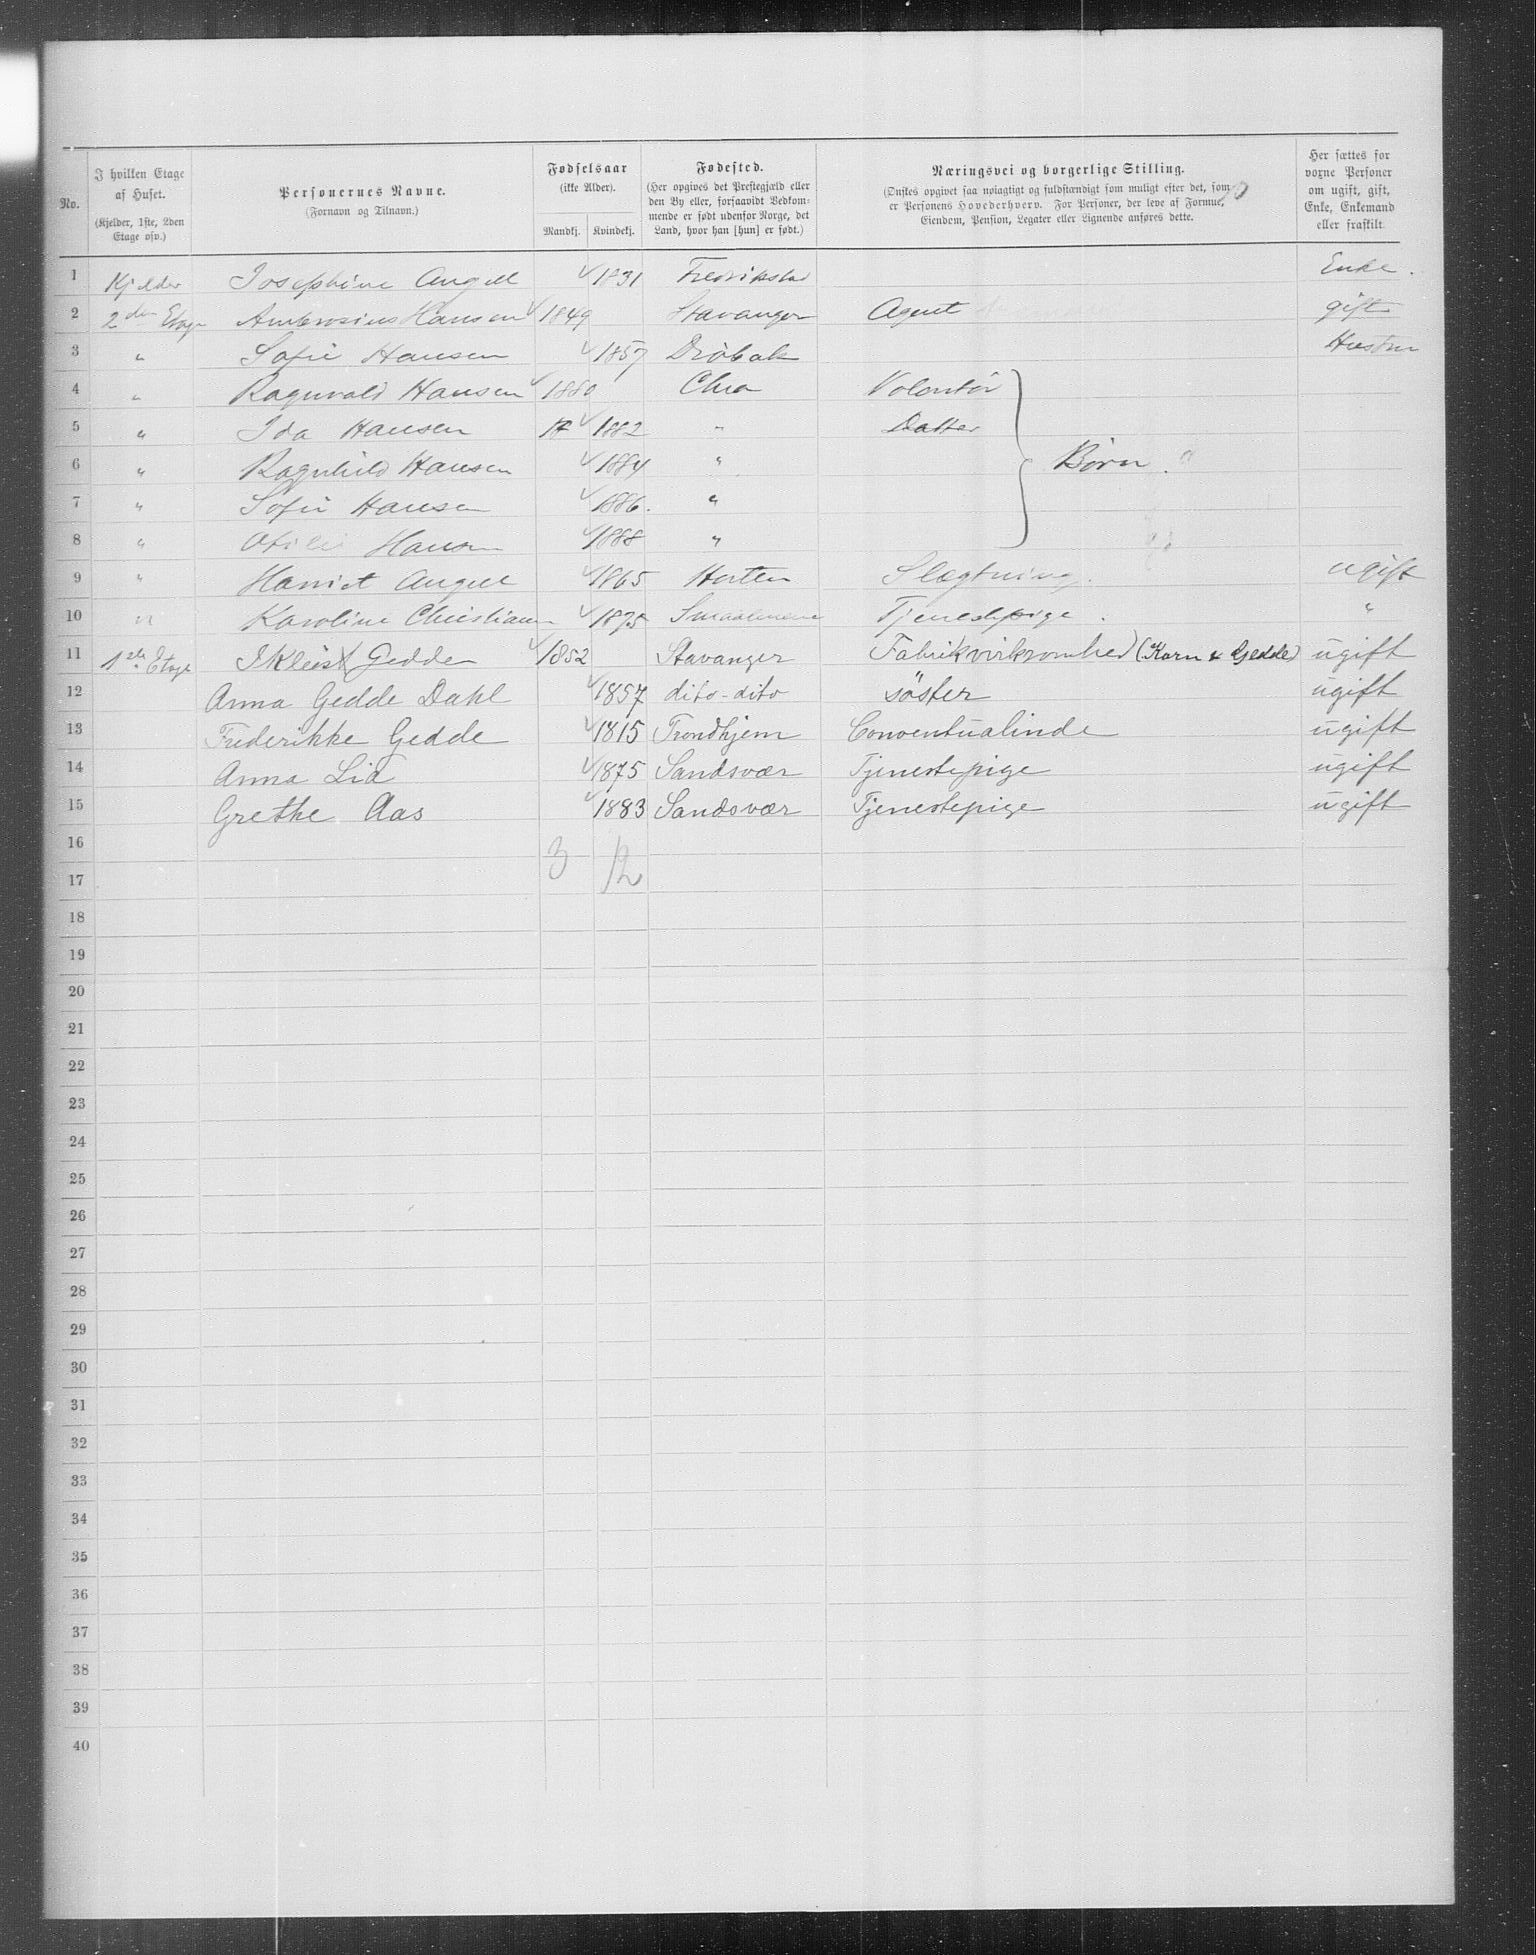 No.
I hvilken Etage af Huset.
(Kjelder, 1ste, 2den Etage osv.)
Personernes Navne.
(Fornavn og Tilnavn.)
Fødselsaar
(ikke Alder).
Mandkj.
Kvindekj.
Fødested.
(Her opgives det Prestegjæld eller den By eller, forsaavidt Vedkommende er født udenfor Norge, det Land, hvor han [hun] er født.)
Næringsvei og borgerlige Stilling.
(Ønskes opgivet saa nøiagtigt og fuldstændigt som muligt efter det, som er Personens Hovederhverv. For Personer, der leve af Formue, Eiendom, Pension, Legater eller Lignende anføres dette.
Her sættes for voxne Personer om ugift, gift, Enke, Enkemand eller fraskilt.
1 Kjelder Josephine Angell 1831 Fredrikstad Enke.
2 2den Etage Ambrosius Hansen 1849 Stavanger Agent gift
3 " Sofie Hansen 1857 Drøbak Hustru
4 " Ragnvald Hansen 1880 Chra Volontør
5 " Ida Hansen 1882 " Datter
6 " Ragnhild Hansen 1884 " Børn.
7 " Sofie Hansen 1886. "
8 " Otilie Hansen 1888 "
9 " Harriet Angell 1865 Horten Slægtning. ugift
10 " Karoline Christiansen 1875 Smaalenene Tjenestepige. "
11 1ste Etage J Kleist Gedde 1852 Stavanger Fabrikvirksomhed (Korn & Gedde) ugift
12 Anna Gedde Dahl 1857 dito-dito søster ugift
13 Frederikke Gedde 1815 Trondhjem Conventualinde ugift
14 Anna Lid 1875 Sandsvær Tjenestepige ugift
15 Grethe Aas 1883 Sandsvær Tjenestepige ugift
16 3 12
17
18
19
20
21
22
23
24
25
26
27
28
29
30
31
32
33
34
35
36
37
38
39
40